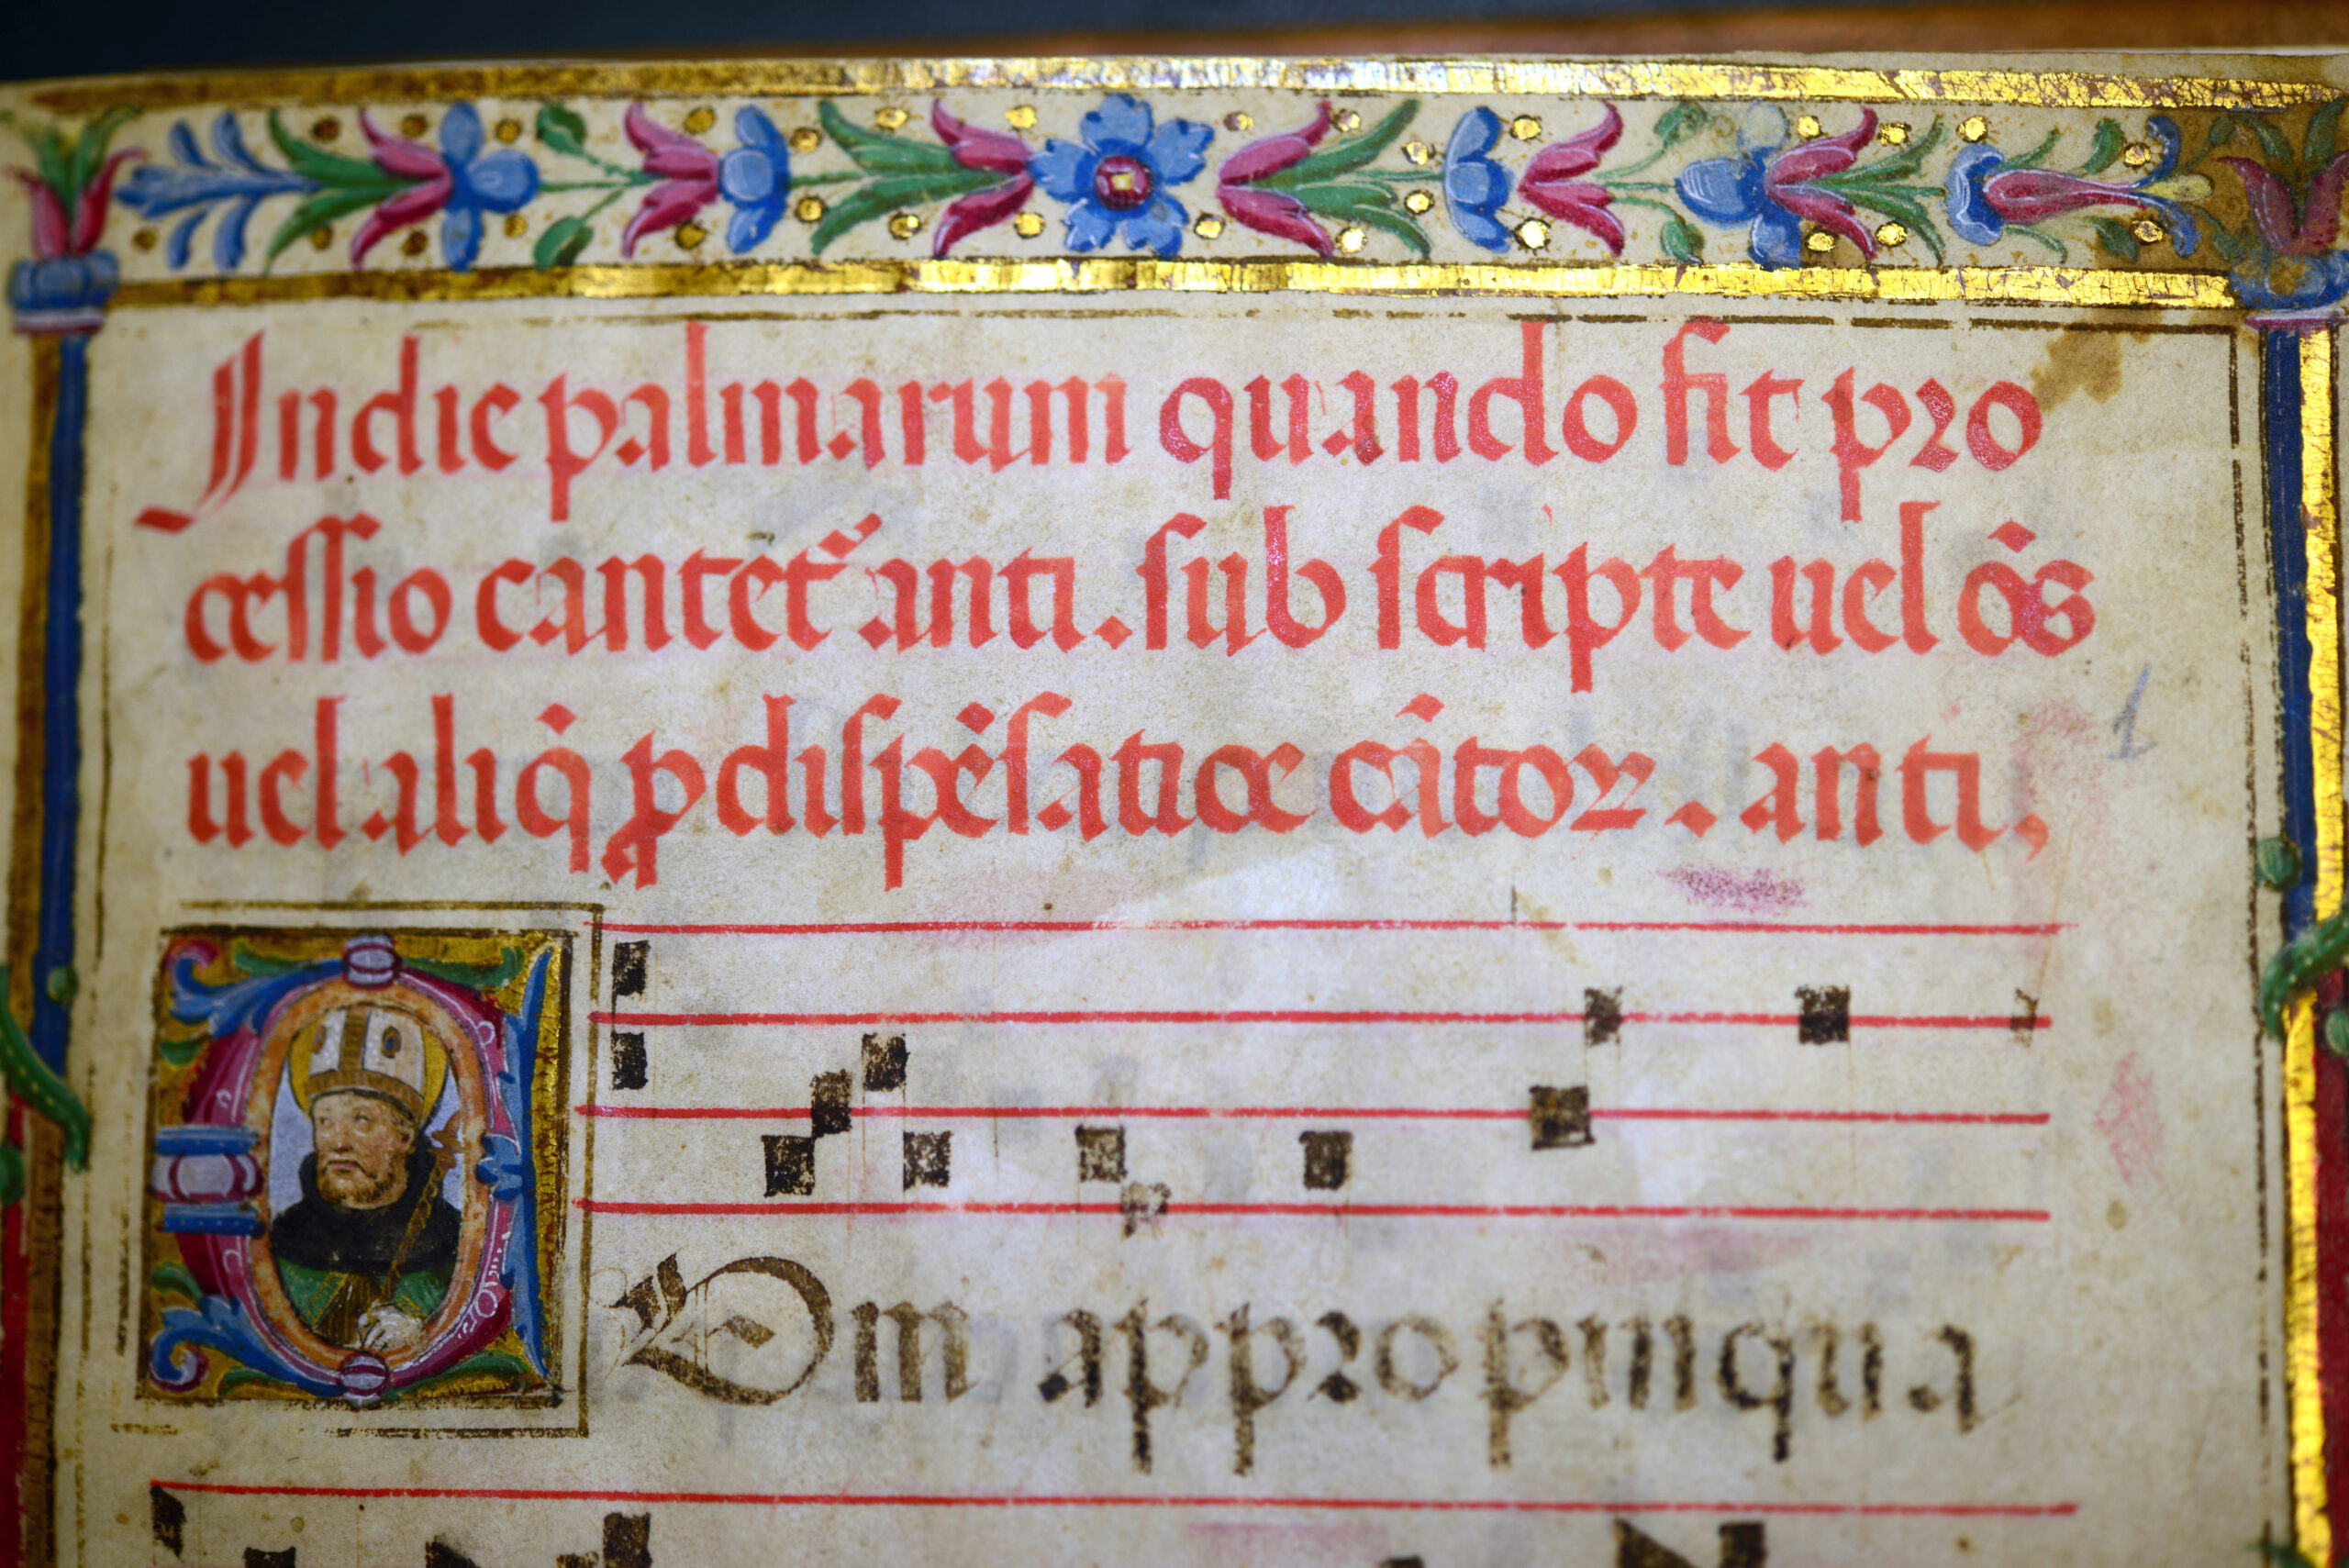 Indie palmarum quando fit pro
cessio cantet᷑ anti. sub scripte uel o̅s
uel aliq̅ ꝓ dispe̅satioe ca̅toꝝ. anti,
1
Om appropinqua